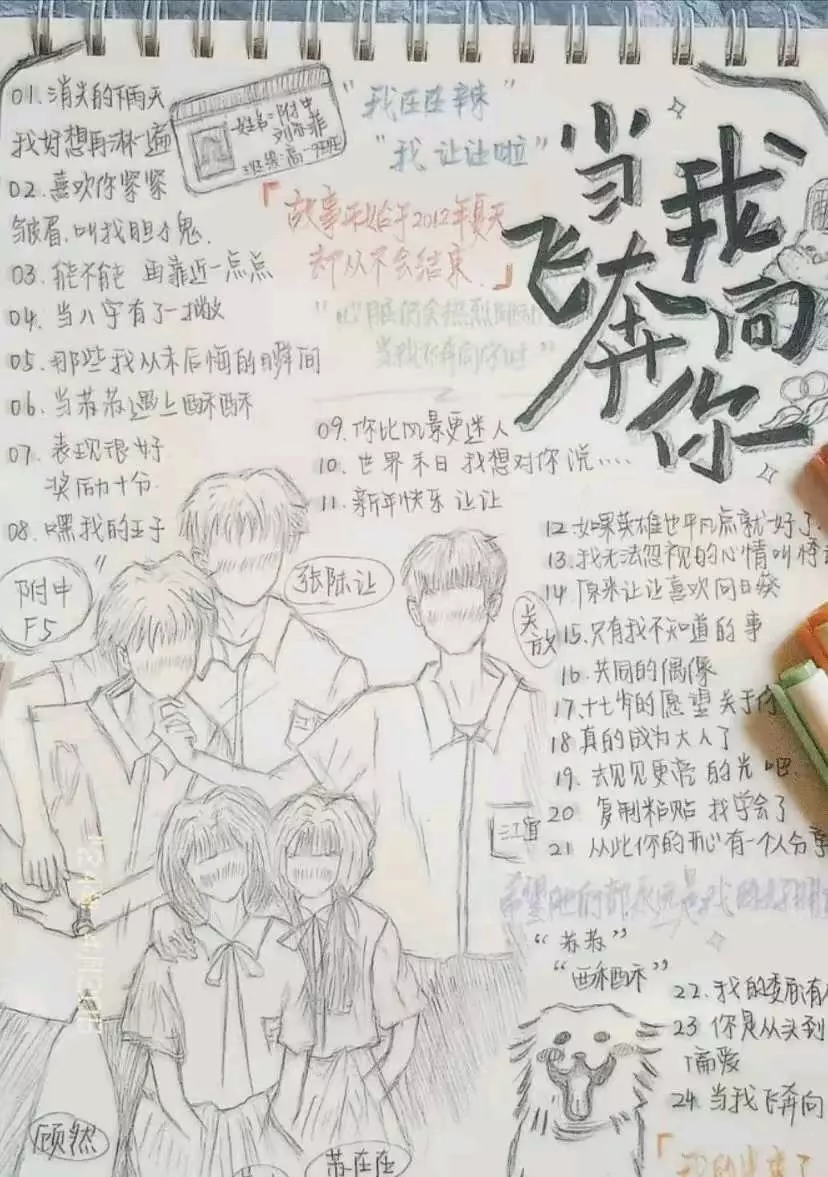 01.消失的下雨天
我好想再淋一遍
02.喜欢你紧紧
皱眉.叫我胆小鬼.
03.能不能 再靠近一点点
04.当八字有了一撇
05.那些我从未后悔的瞬间
06.当苏苏遇上酥酥
07.表现很好
奖励十分.
08.嘿我的王子
姓名:附中
刘亦菲
班级:高一9班
"我在在辣"
"我让让啦"
「故事开始于2012年夏天
却从不会结束.」
"心脏仍会热烈跳动
当我飞奔向你时"
当我
飞奔向
你
09.你比风景更迷人
10.世界末日 我想对你说....
11.新年快乐 让让
12.如果英雄也平凡点就好了
13.我无法忽视的心情叫
14.原来让让喜欢向日葵
15.只有我不知道的事
16.共同的偶像
17.十七岁的愿望 关于你
18真的成为大人了
19.去见见更亮的光吧.
20 复制粘贴 我学会了
21 从此你的开心有一个人分享
附中
F5
张陆让
关放
江宜
希望他们都永远是我的好朋
"苏苏"
"酥酥"
22.我的委屈有
23 你是从头到
偏爱
24.当我飞奔向
顾然
苏在在